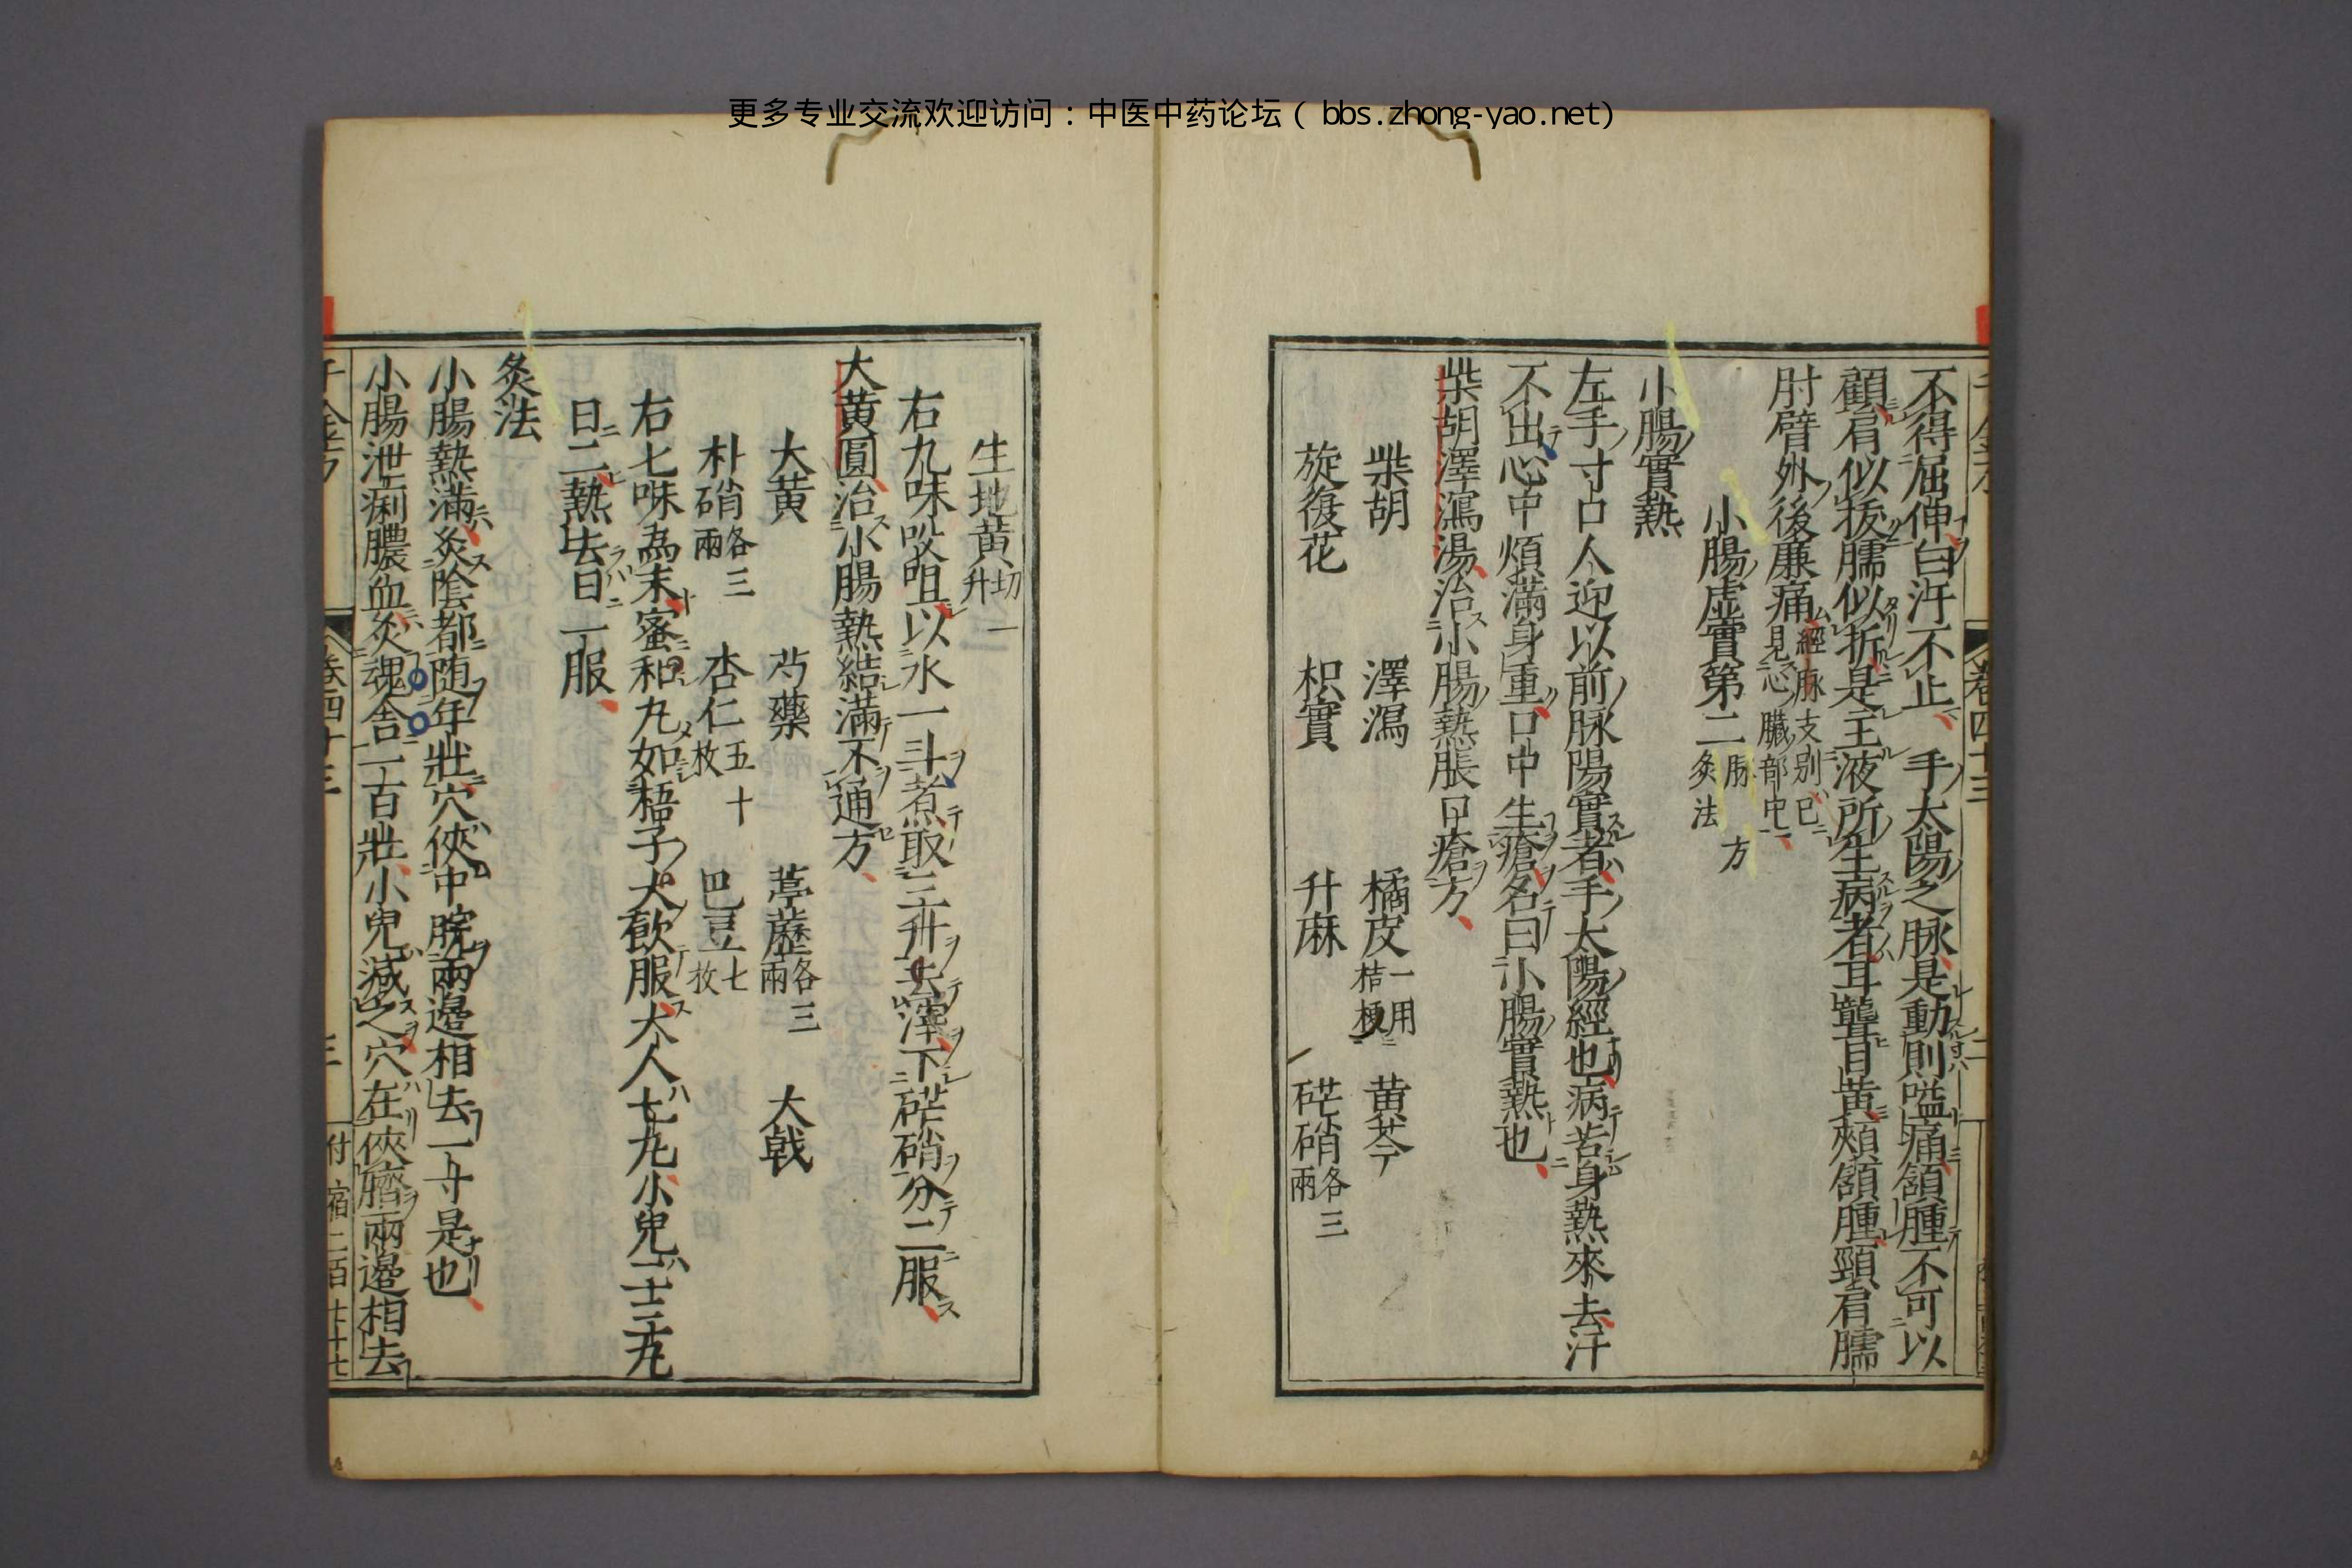 更多专业交流欢迎访问：中医中药论坛（bbs.zhong-yao.net）
不得屈伸白汗不止　手太陽之脉是動則嗌痛頷腫不可以
顧肩似拔臑似折是主液所生病者耳聾目黃頰頷腫頸肩臑
肘臂外後廉痛經脉支别已見心臟部中
小腸虚實第二脉方灸法
小腸實熱
左手寸口人迎以前脉陽實者手太陽經也病苦身熱來去汗
不出心中煩滿身重口中生瘡名曰小腸實熱也
柴胡澤瀉湯治小腸熱脹口瘡方
柴胡　澤瀉　橘皮一用桔梗　黄芩
旋復花　枳實　升麻　硭硝各三兩
生地黄切一升
右九味㕮咀以水一斗煮取三升去滓下硭硝分二服
大黄圓治小腸熱結滿不通方
大黄　芍藥　葶藶各三兩　大戟
朴硝各三兩　杏仁五十枚　巴豆七枚
右七味為末蜜和丸如梧子大飲服大人七丸小兒二三丸
日二熱去日一服
灸法
小腸熱滿灸陰都随年壯穴俠中脘兩邊相去一寸是也
小腸泄痢膿血灸魂舍一百壯小兒減之穴在俠臍兩邊相去
卷四十三